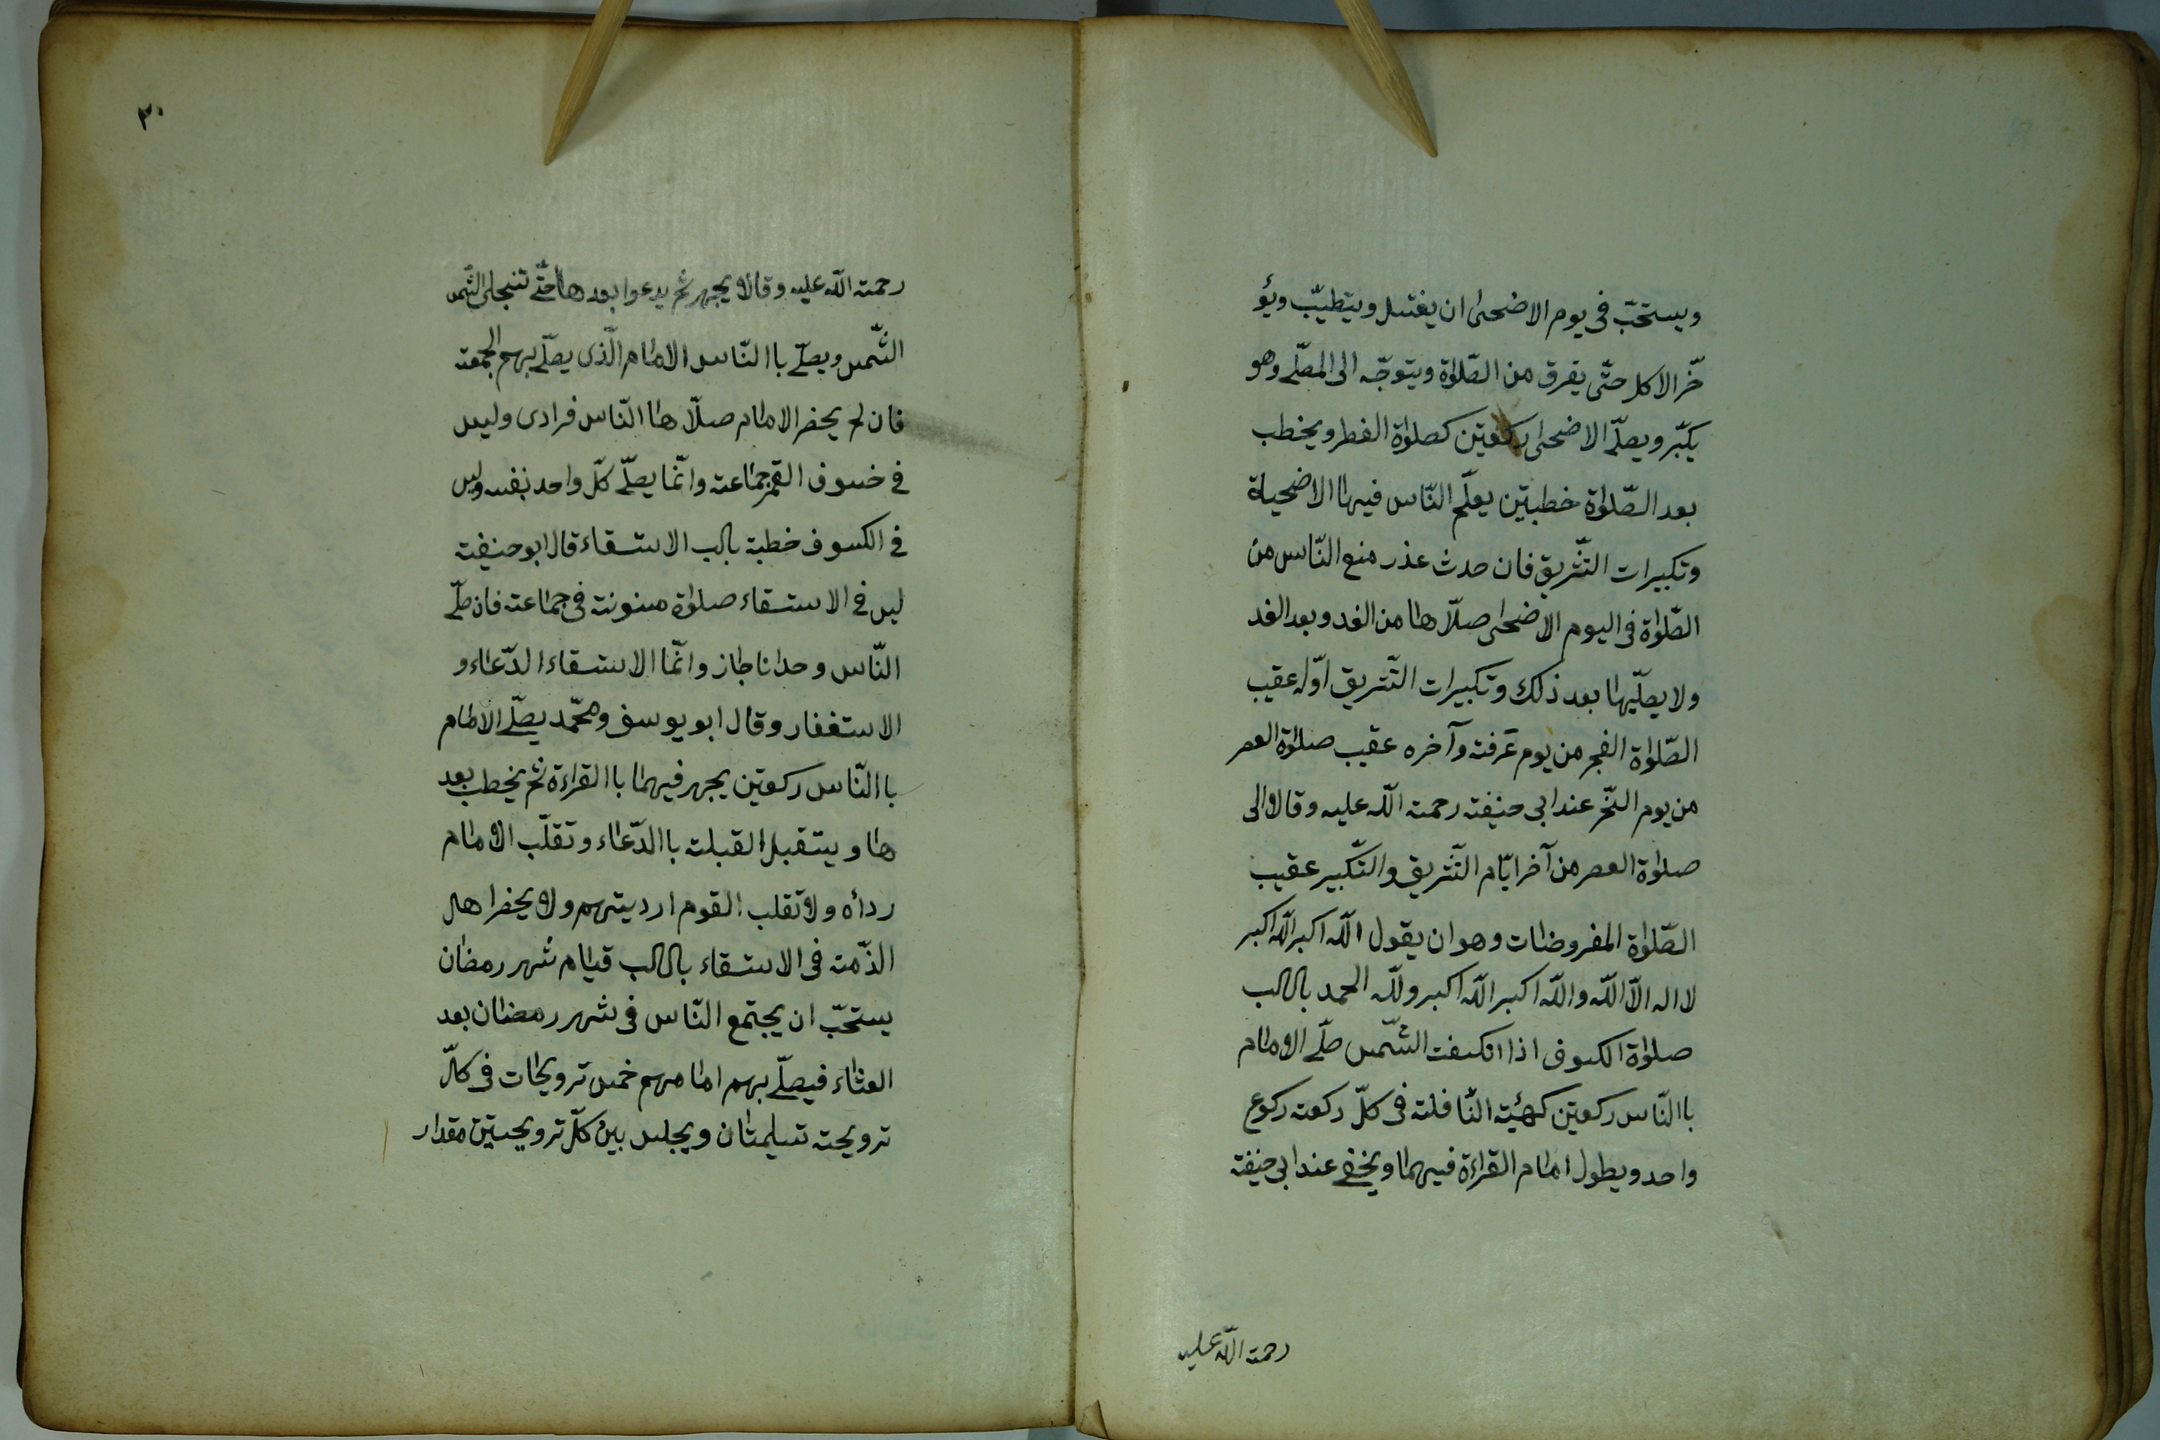 ويستحبّ فى يوم الاضحى ان يغتسل ويتطيّب ويؤ
خّر الاكل حتّى يفرق من الصّلوة ويتوجّه الى المصلّے وهو
يكبّر ويصلّے الاضحى ركعتين كصلوة الفطر ويخطب
بعد الصّلوة خطبتين يعلّم النّاس فيها الاضحياة
وتكبيرات التّشريق فان حدث عذر منع النّاس من
الصّلوة فى اليوم الاضحى صلّاها من الغد وبعد الغد
ولا يصلّيها بعد ذلك وتكبيرات التّشريق اوّله عقيب
الصّلوة الفجر من يوم عَرفته وآخره عقيب صلوة العصر
من يوم النّحر عند ابى حنيفته رحمته اللّه عليه وقالا الى
صلوة العصر من آخر ايّام التّشريق والتّكبير عقيب
الصّلوة المفروضات وهو ان يقول اللّه اكبر اللّه اكبر
لا اله الّا اللّه واللّه اكبر اللّه اكبر وللّه الحمد بااب
صلوة الكسوف اذا انكسفت الشّمس صلّے الامام
باالنّاس ركعتين كهئية النّافلته فى كلّ ركعته ركوع
واحد ويطول امام القراءة فيهما ويخفے عند ابى حنيفته
رحمته اللّه عليه
٣٠
رحمته اللّه عليه وقالا يجهر ثم يدعوا بعدها حتّے تنجلى الشّمس
الشّمس ويصلّے باالنّاس الامام الّذى يصلّے بهم الجمعته
فان لم يحضر الامام صلّاها النّاس فرادى وليس
فے خسوف القمر جماعته وانّما يصلّے كلّ واحد نفسه وليس
فے الكسوف خطبة باب الاستسقاء قال ابو حنيفته
ليس فے الاستسقاء صلوة مسنونته فى جماعته فان صلّے
النّاس وحدانا جاز وانّما الاستسقاء الدّعاء و
الاستغفار وقال ابو يوسف ومحمّد يصلّے الامام
باالنّاس ركعتين يجهر فيهما باالقراءة ثم يخطب بعد
ها ويستقبل القبلته باالدّعاء وتقلّب الامام
ردأه ولا تقلب القوم ارديتهم ولا يحضر اهل
الذّمته فى الاستسقاء بااب قيام شهر رمضان
يستحبّ ان يجتمع النّاس فى شهر رمضان بعد
العشاء فيصلّے بهم امامهم خمس ترويحات فى كلّ
ترويحته تسليمتان ويجلس بين كلّ ترويحتين مقدار